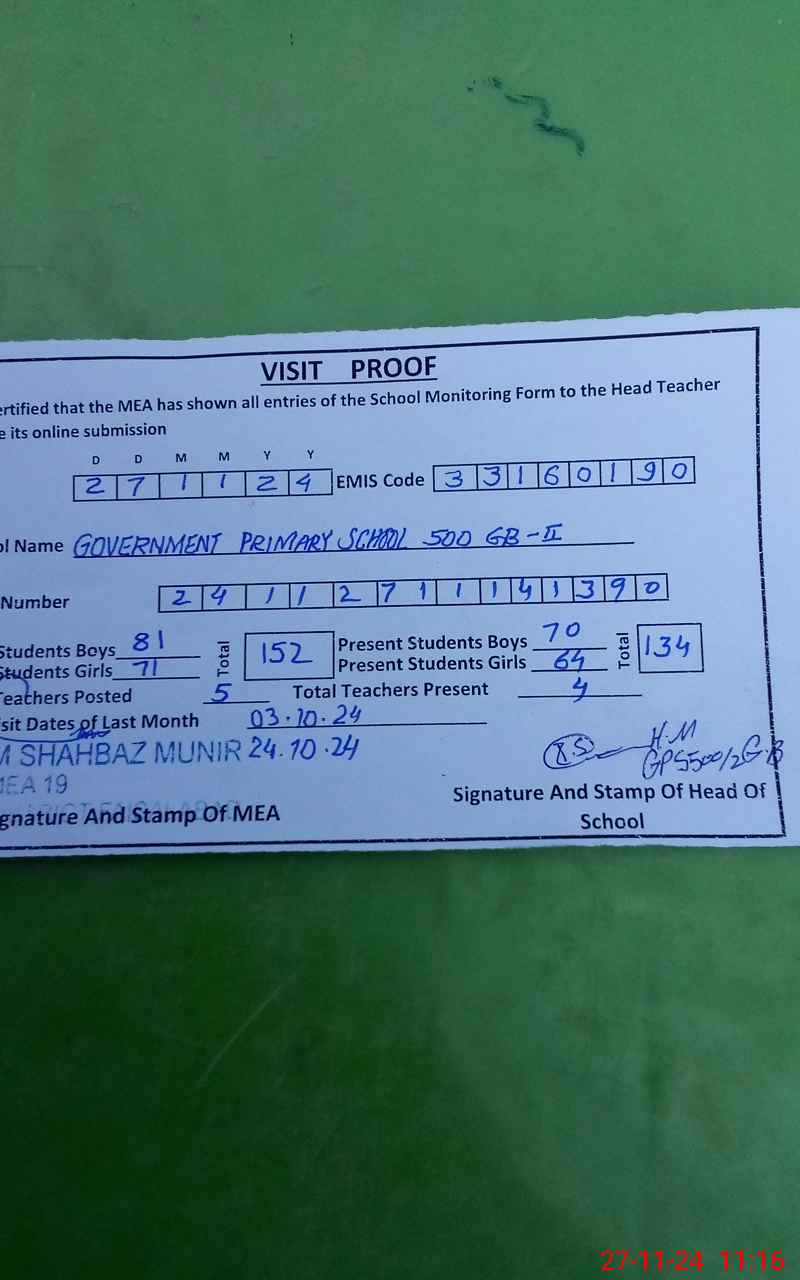 VISIT PROOF
ertified that the MEA has shown all entries of the School Monitoring Form to the Head Teacher
e its online submission
D D M M Y Y
2 7 1 1 2 4 EMIS Code 3 3 1 6 0 1 9 0
ol Name GOVERNMENT PRIMARY SCHOOL 500 GB-II
Number 2 4 1 1 2 7 1 1 1 4 1 3 9 0
Students Boys 81 Total 152 Present Students Boys 70 Total 134
Students Girls 71 Present Students Girls 64
Teachers Posted 5 Total Teachers Present 4
sit Dates of Last Month 03.10.24
M SHAHBAZ MUNIR 24.10.24
MEA 19
H.M
GPS 500/2 G.B
gnature And Stamp Of MEA
Signature And Stamp Of Head Of
School
27-11-24 11:16